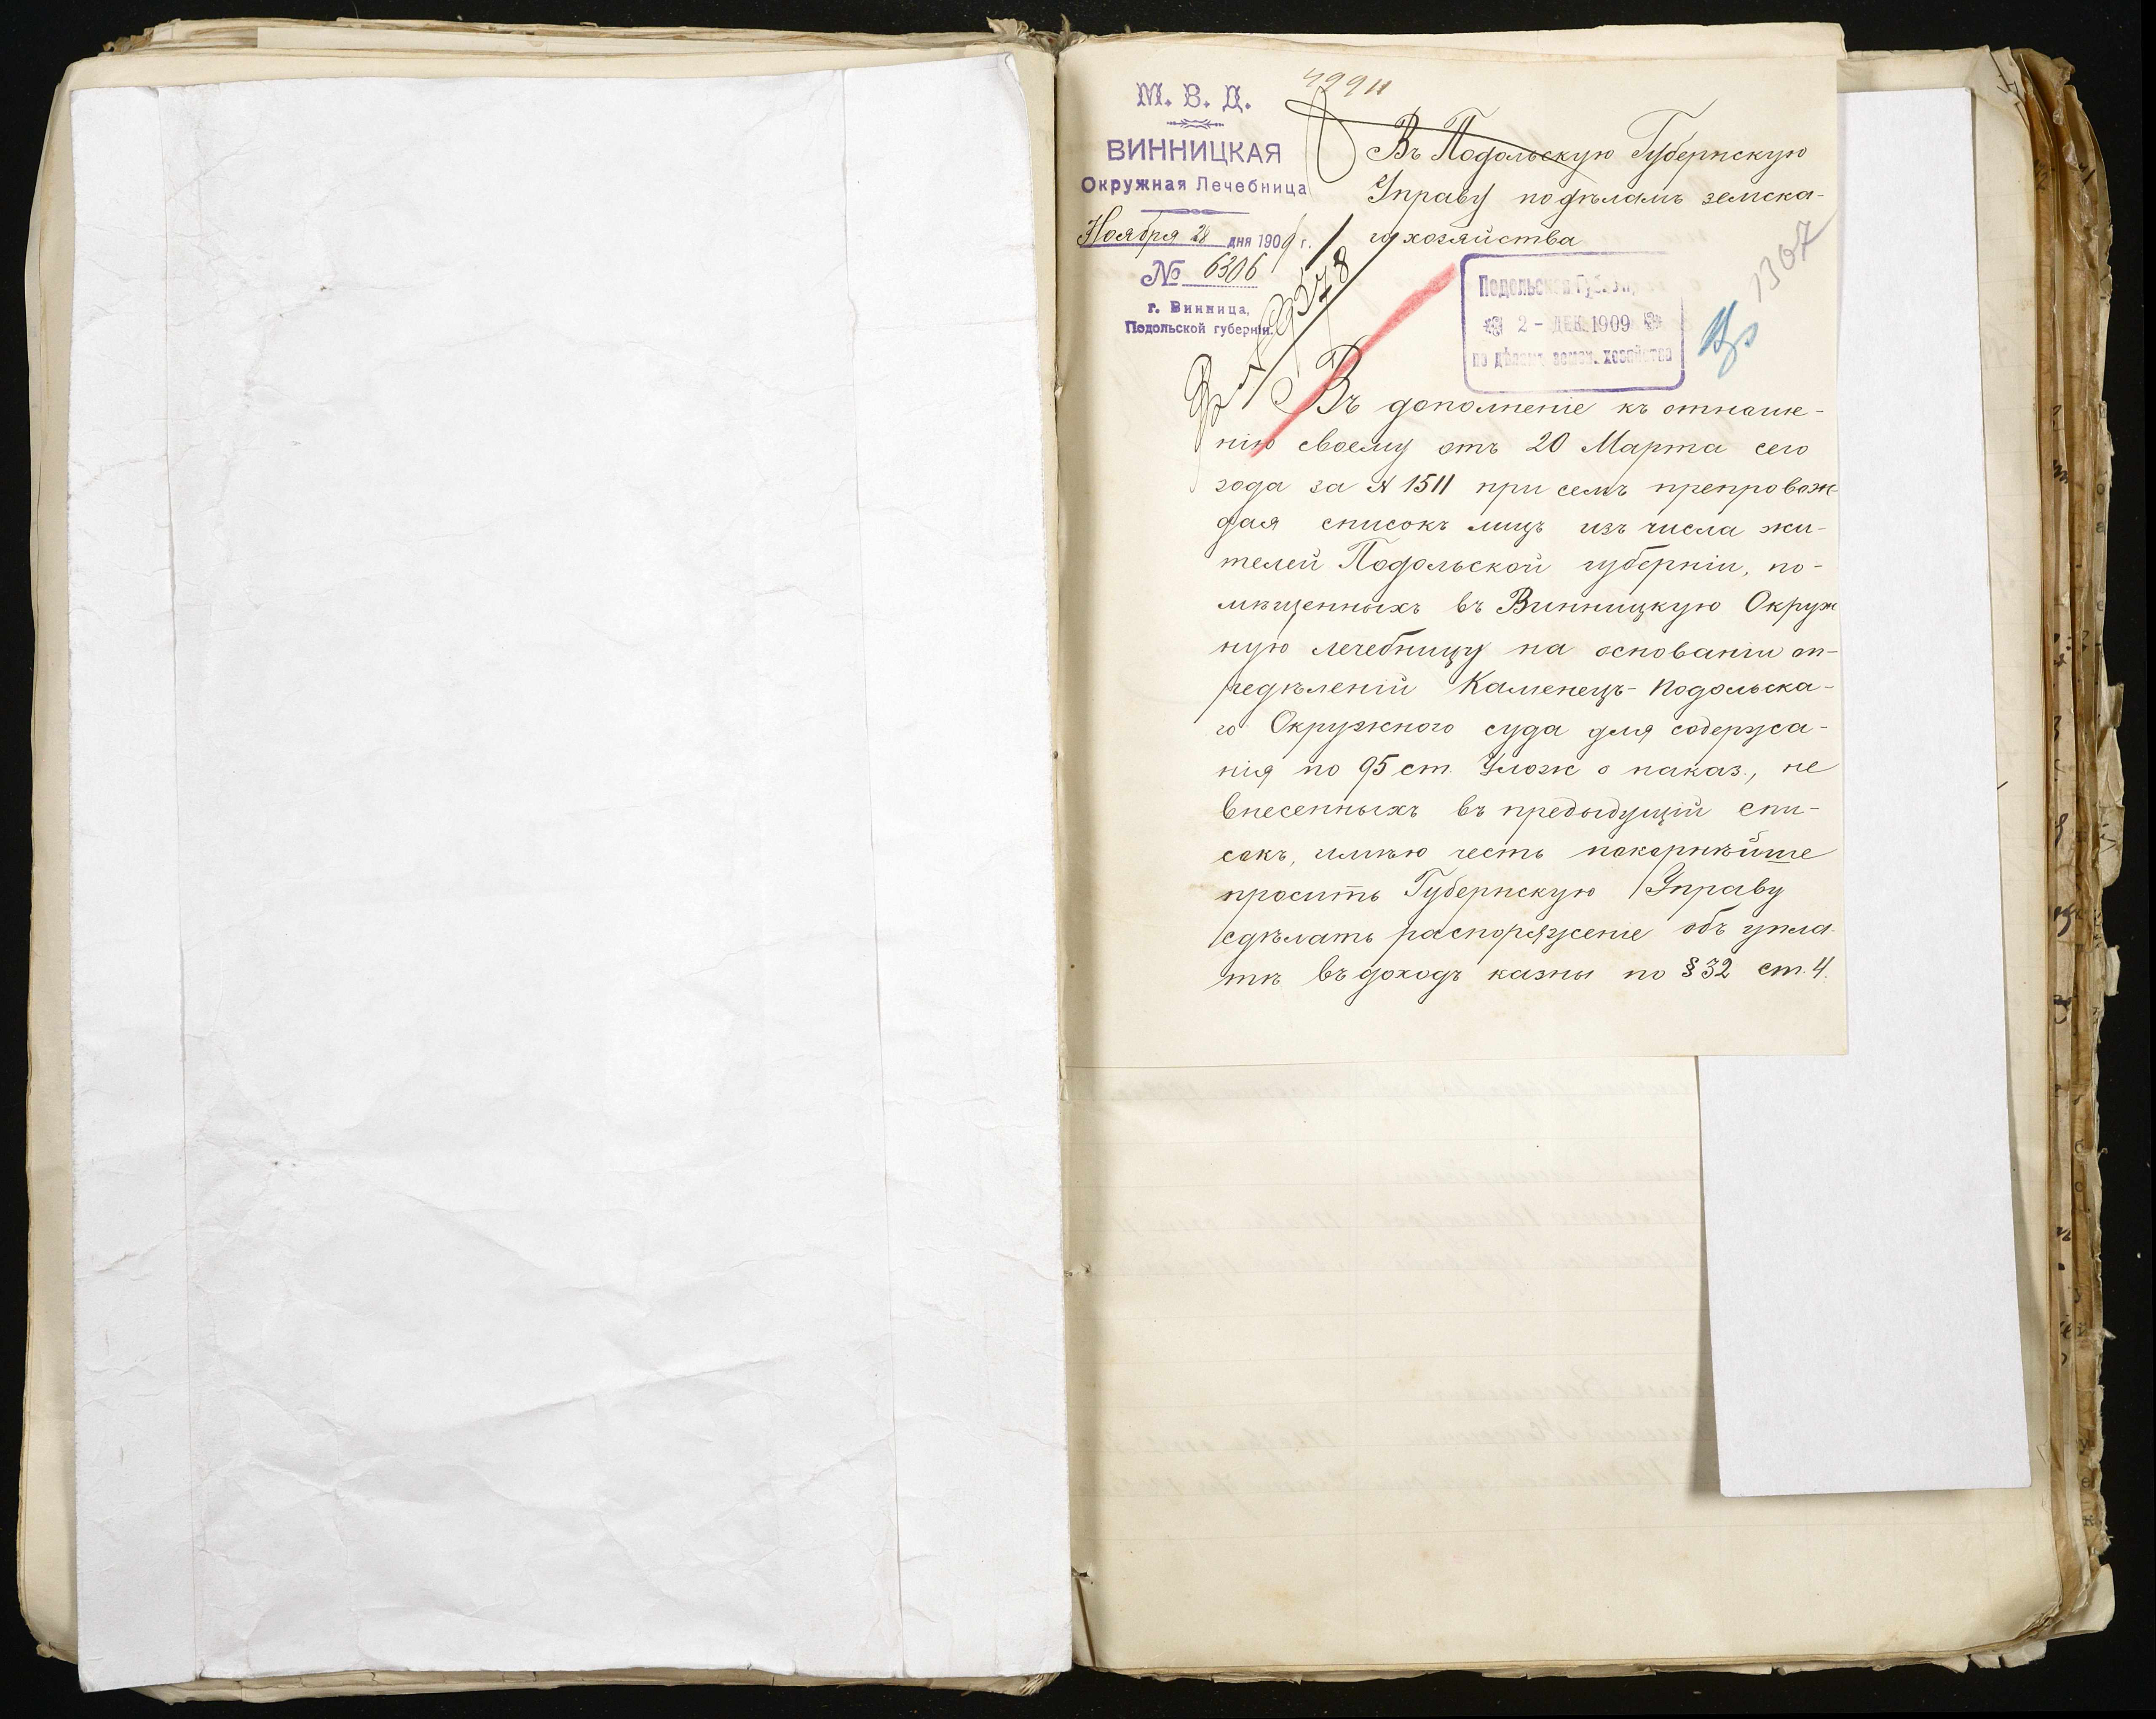 М. В. Д.
ВИННИЦКАЯ
Окружная Лечебница
Ноября 28 дня 1909 г.
№ 6306
г. Винница,
Подольской губернiи.
Въ Подольскую Губернскую
Управу по дѣламъ земска-
го хозяйства
1307
Подольская
2 - ДЕК. 1909
по дѣламъ земск. хозяйства
Въ дополненіе къ отноше-
нію своему отъ 20 Марта сего
года за № 1511 при семъ препровож-
дая списокъ лицъ изъ числа жи-
телей Подольской губерніи, по-
мѣщенныхъ въ Винницкую Окруж
ную лечебницу на основаніи оп-
редѣленій Каменецъ-Подольска-
го Окружного суда для содержа-
нія по 95 ст. Улож о наказ., не
внесенныхъ въ предыдущій спи-
сокъ, имѣю честь покорнѣйше
просить Губернскую Управу
сдѣлать распоряженіе объ упла-
тѣ въ доходъ казны по § 32 ст. 4.